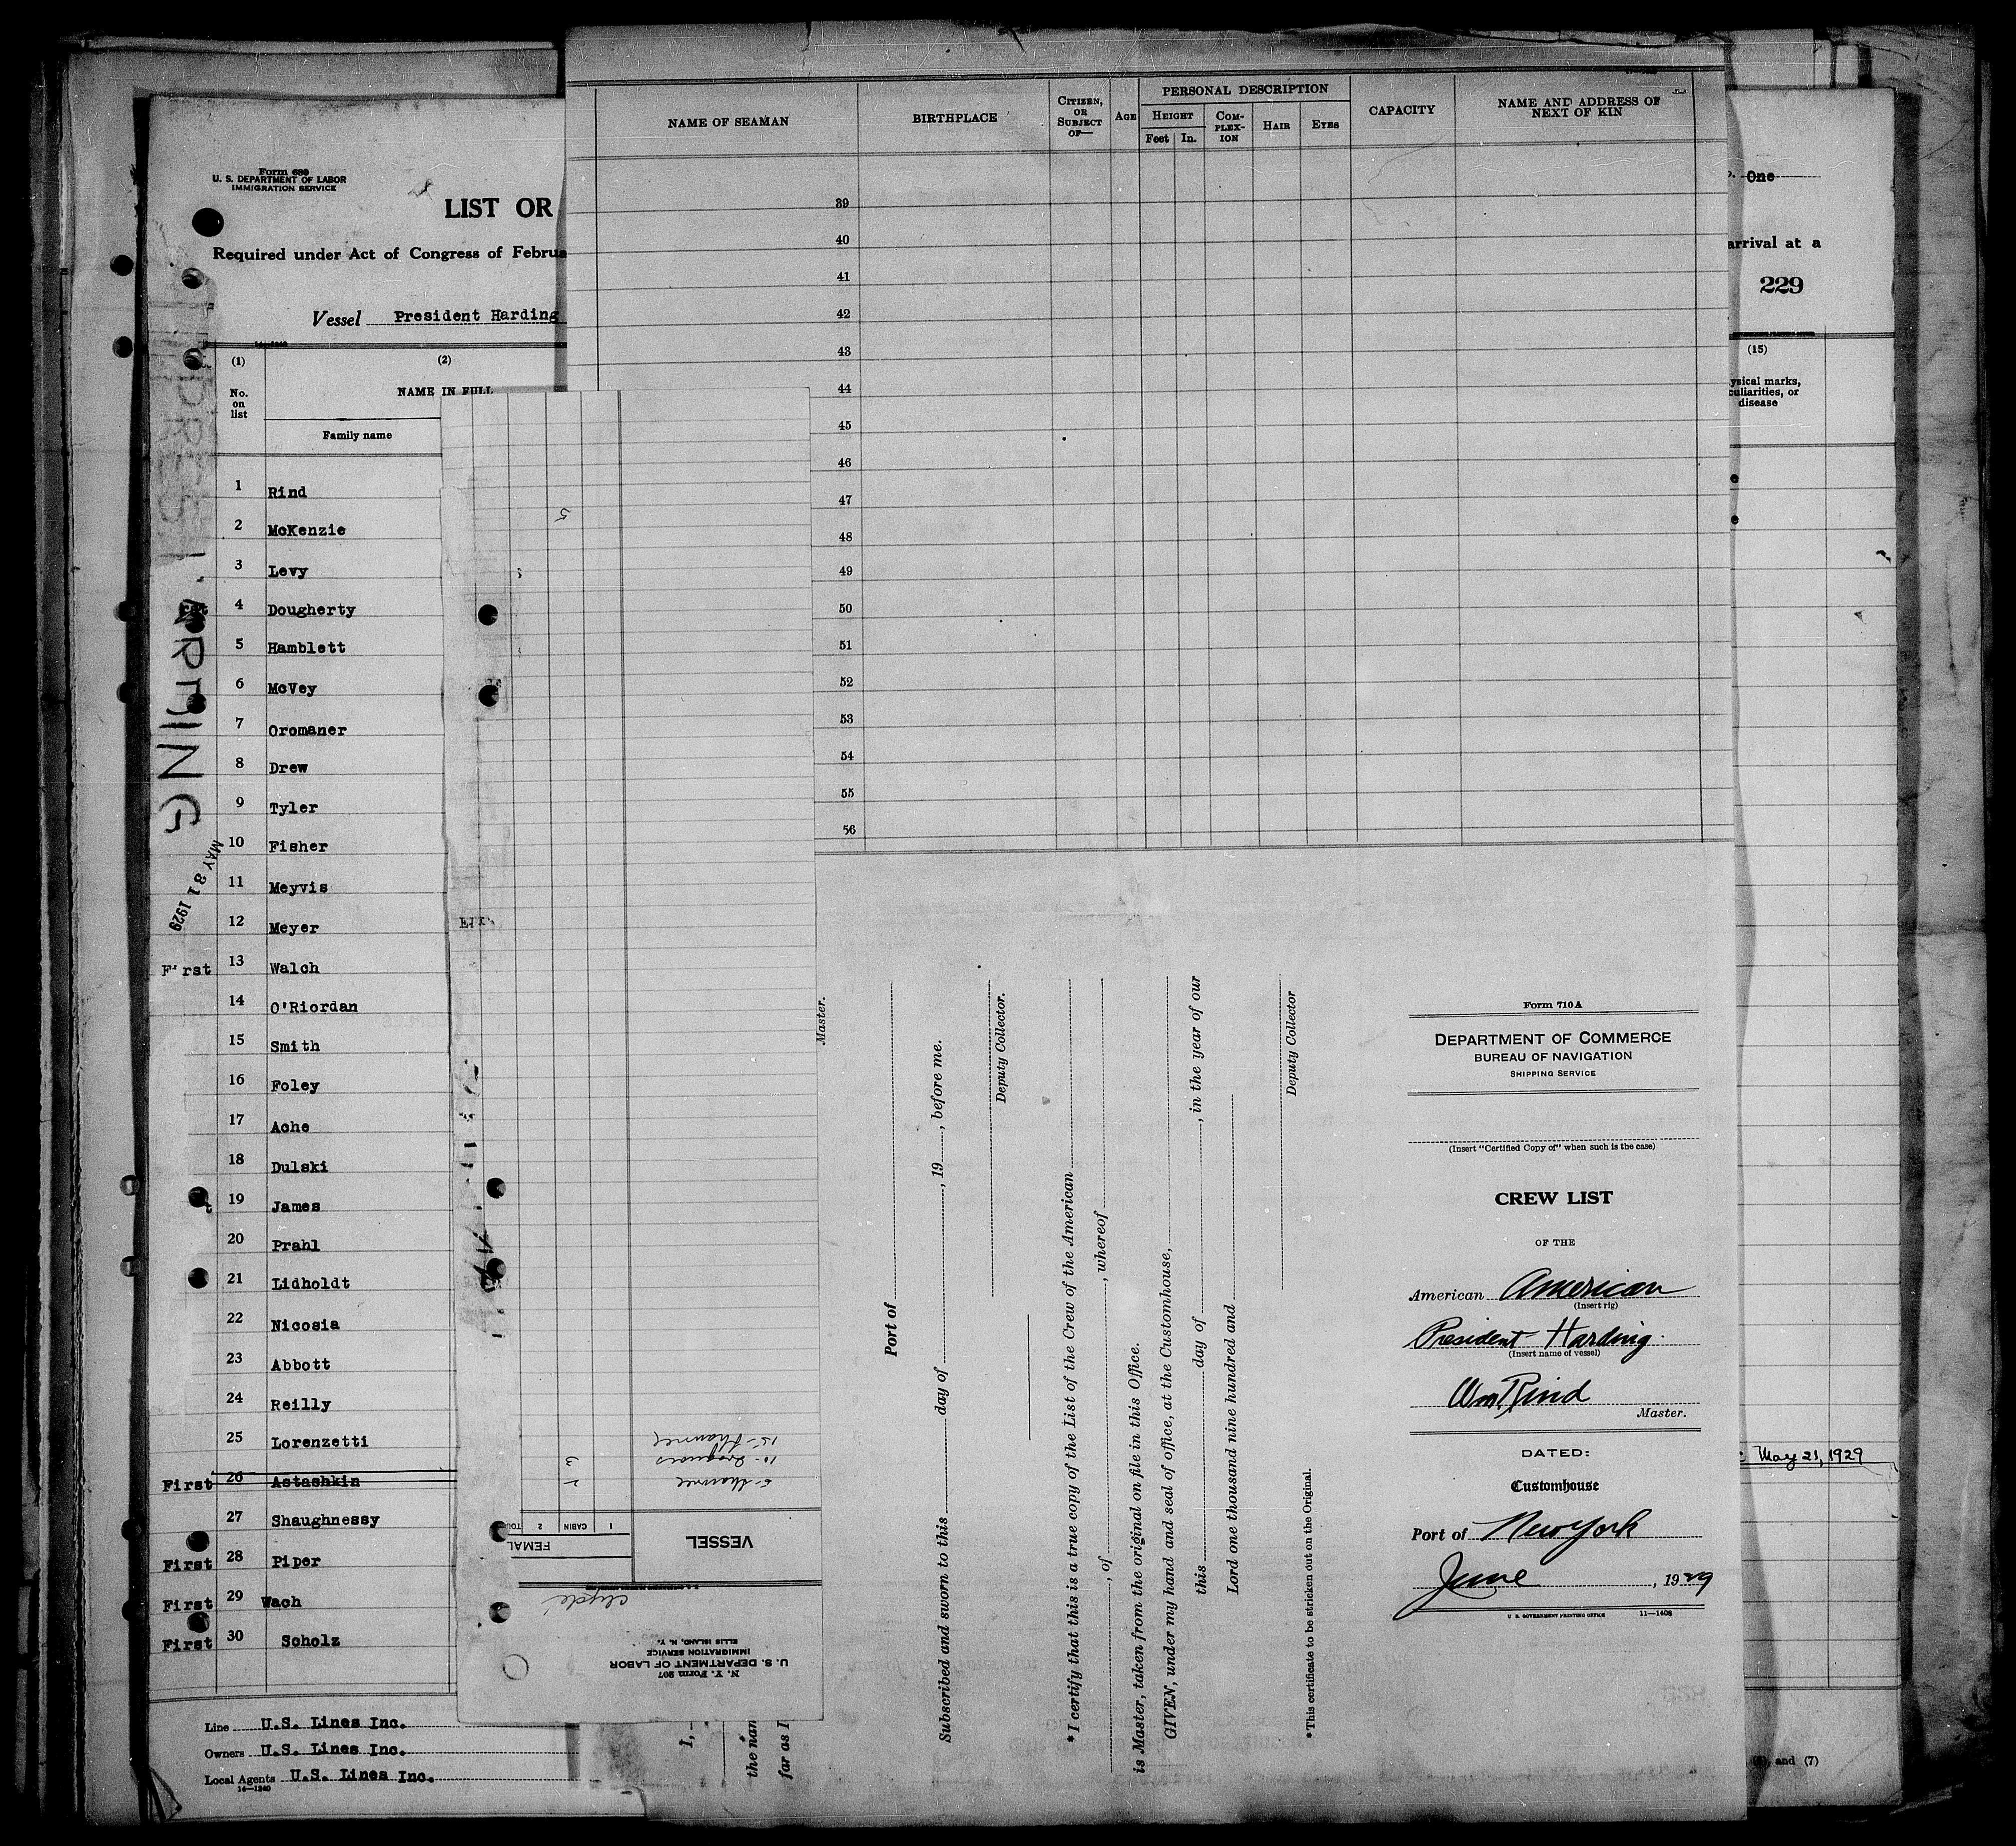 Form 680
U. S. DEPARTMENT OF LABOR
IMMIGRATION SERVICE
LIST OR
Required under Act of Congress of Februa
Vessel President Harding
14—1240
(1)
(2)
No.
on
list
NAME IN FULL
Family name
1 Rind
2 McKenzie
3 Levy
4 Dougherty
5 Hamblett
6 McVey
7 Oromaner
8 Drew
9 Tyler
10 Fisher
11 Meyvis
12 Meyer
First 13 Walch
14 O'Riordan
15 Smith
16 Foley
17 Ache
18 Dulski
19 James
20 Prahl
21 Lidholdt
22 Nicosia
23 Abbott
24 Reilly
25 Lorenzetti
First 26 Astashkin
27 Shaughnessy
First 28 Piper
First 29 Wach
First 30 Scholz
MAY 31 1929
Line U.S. Lines Inc.
Owners U.S. Lines Inc.
Local Agents U.S. Lines Inc.
14—1240
NAME OF SEAMAN
BIRTHPLACE
CITIZEN,
OR
SUBJECT
OF—
AGE
PERSONAL DESCRIPTION
HEIGHT
Feet In.
COM-
PLEX-
ION
HAIR
EYES
CAPACITY
NAME AND ADDRESS OF
NEXT OF KIN
39
40
41
42
43
44
45
46
47
48
49
50
51
52
53
54
55
56
One
arrival at a
229
(15)
ysical marks,
culiarities, or
disease
May 21, 1929
and (7)
N. Y. Form 207
U. S. DEPARTMENT OF LABOR
IMMIGRATION SERVICE
ELLIS ISLAND, N. Y.
Clyde
VESSEL
FEMAL
1
CABIN
2
TOU
2
3
5
I,
the nam
far as I
Master.
Port of
Subscribed and sworn to this day of , 19 , before me.
Deputy Collector.
*I certify that this is a true copy of the List of the Crew of the American
, of , whereof
is Master, taken from the original on file in this Office.
GIVEN, under my hand and seal of office, at the Customhouse,
this day of , in the year of our
Lord one thousand nine hundred and
Deputy Collector
*This certificate to be stricken out on the Original.
Form 710 A
DEPARTMENT OF COMMERCE
BUREAU OF NAVIGATION
SHIPPING SERVICE
(Insert "Certified Copy of" when such is the case)
CREW LIST
OF THE
American American
(Insert rig)
President Harding
(Insert name of vessel)
Wm Rind
Master.
DATED:
Customhouse
Port of New York
June , 1929
U. S. GOVERNMENT PRINTING OFFICE 11—1408